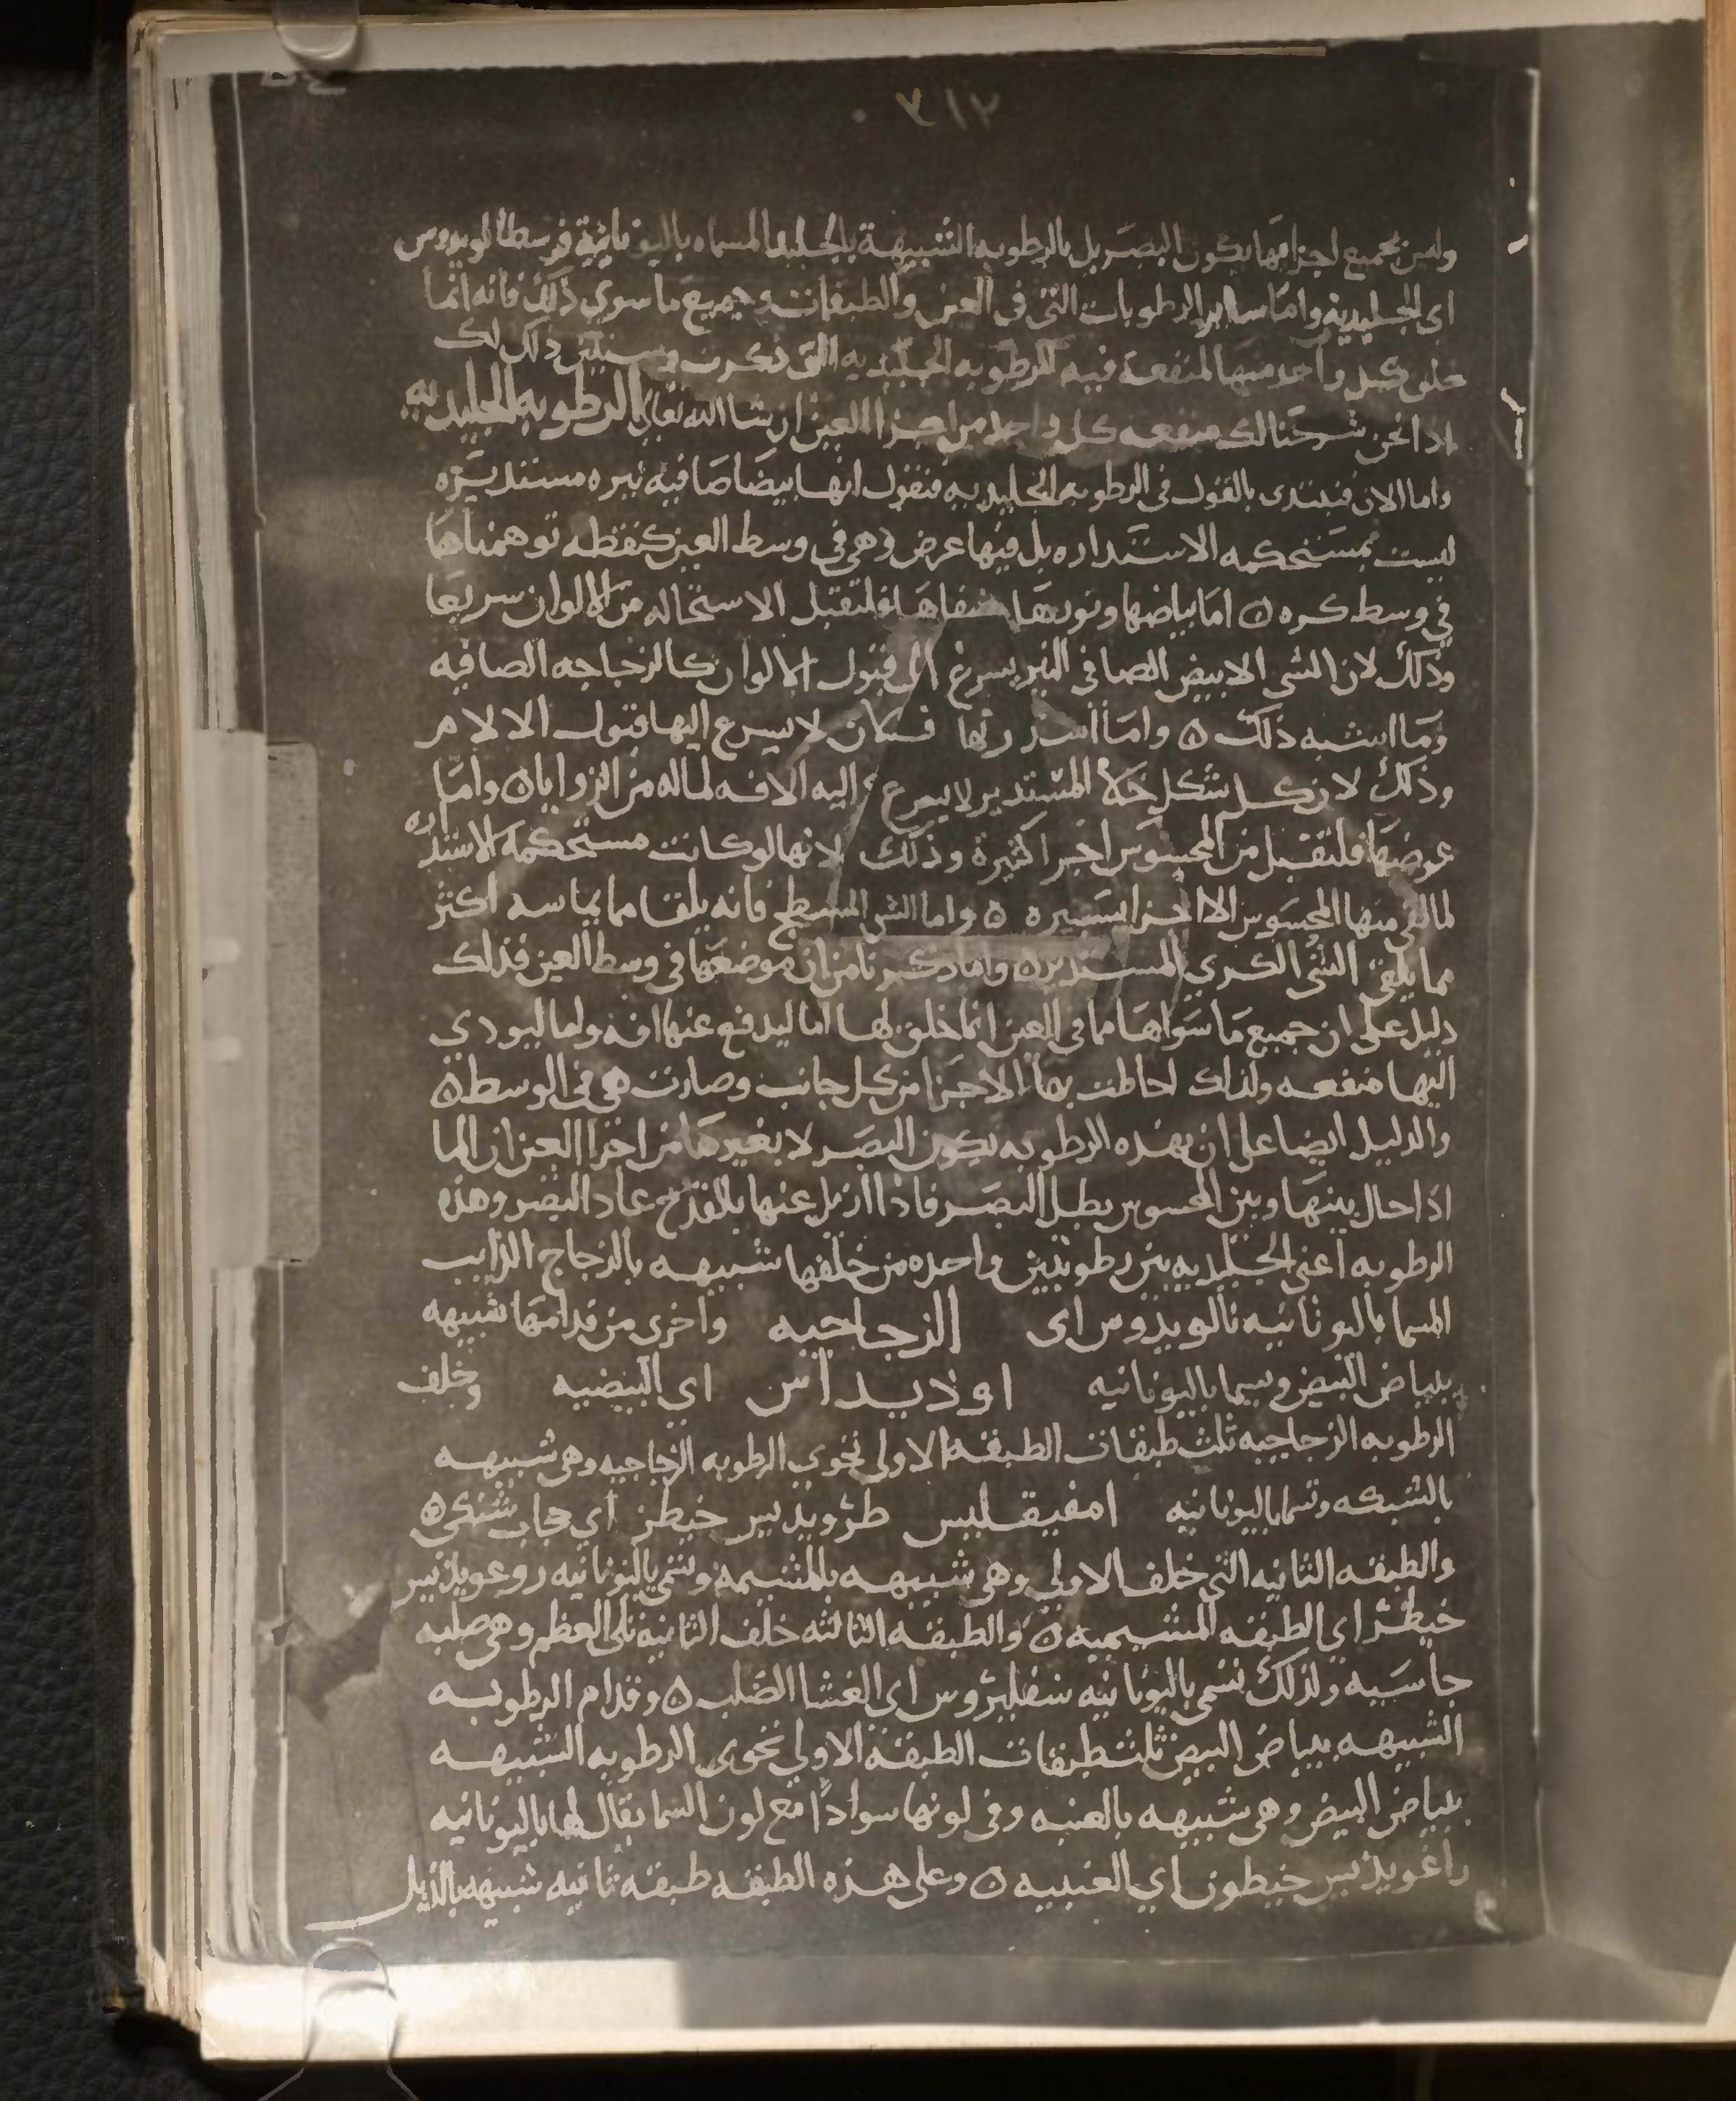 ٣١٢
وليس بجميع اجزامها يكون البصر بل بالرطوبه الشبيهة بالجليد المسماه باليونانية قرسطالويدوس
اى الجليدية واما ساير الرطوبات التى فى العين والطبقات وجميع ما سوي ذلك فانه انما
خلق كل واحد منها لمنفعة فيه للرطوبه الجليديه التى ذكرت وسنبين ذلك لك
اذا نحن شرحنا لك منفعه كل واحد من اجزا العين ان شا الله تعالى الرطوبه الجليديه
واما الان فنبتدى بالقول فى الرطوبه الجليديه فنقول انها بيضا صافيه نيره مستديره
ليست بمستحكمه الاستداره بل فيها عرض وهى فى وسط العين كنقطه توهمناها
في وسط كره ٥ اما بياضها ونورها وصفاها فلتقبل الاستحاله من الالوان سريعا
وذلك لان الشي الابيض الصافى النير يسرع الى قبول الالوان كالزجاجه الصافيه
وما اشبه ذلك ٥ واما استدارتها فكان لا يسرع اليها قبول الالام
وذلك لان كل شكل خلا المستدير لا يسرع اليه الافه لماله من الزوايا ٥ واما
عرضها فلتقبل من المحسوس اجزا كثيرة وذلك لانها لو كانت مستحكمة الاستداره
لما لقى منها المحسوس الا اجزا يسيره ٥ واما الشي المسطح فانه يلقا مما يماسه اكثر
مما يلقى الشي الكري المستدير ٥ واما ذكرنا من ان موضعها فى وسط العين فذلك
دليل على ان جميع ما سواها مما فى العين انما خلق لها اما ليدفع عنها افه واما ليودي
اليها منفعه ولذلك احاطت بها الاجزا من كل جانب وصارت هى فى الوسط ٥
والدليل ايضا على ان بهذه الرطوبه يكون البصر لا بغيرها من اجزا العين ان الما
اذا حال بينها وبين المحسوس بطل البصر فاذا ازيل عنها بالقدح عاد البصر وهذه
الرطوبه اعنى الجليديه بين رطوبتين واحده من خلفها شبيهه بالزجاج الذايب
المسما باليونانيه نالويدوس اى الزجاجيه واخرى من قدامها شبيهه
ببياض البيض ويسما باليونانيه اودايداس اي البيضيه وخلف
الرطوبه الزجاجيه ثلث طبقات الطبقه الاولى تحوى الرطوبه الزجاجيه وهى شبيهه
بالشبكه وتسما باليونانيه امفيقليس طرويديس خيطن اي حجاب شبكى ٥
والطبقه الثانيه التي خلف الاولي وهى شبيهه بالمشيمه وتسمى باليونانيه روعويديس
خيطن اي الطبقه المشيميه ٥ والطبقه الثالثه خلف الثانيه تلى العظم وهى صلبه
جاسيه ولذلك تسمى باليونانيه سقليروس اى الغشا الصلب ٥ وقدام الرطوبه
الشبيهه ببياض البيض ثلث طبقات الطبقه الاولي تحوى الرطوبه الشبيهه
ببياض البيض وهى شبيهه بالعنبه وفى لونها سوادا مع لون السما يقال لها باليونانيه
راغويديس خيطون اي العنبيه ٥ وعلى هذه الطبقه طبقه ثانيه شبيهه بالذبل